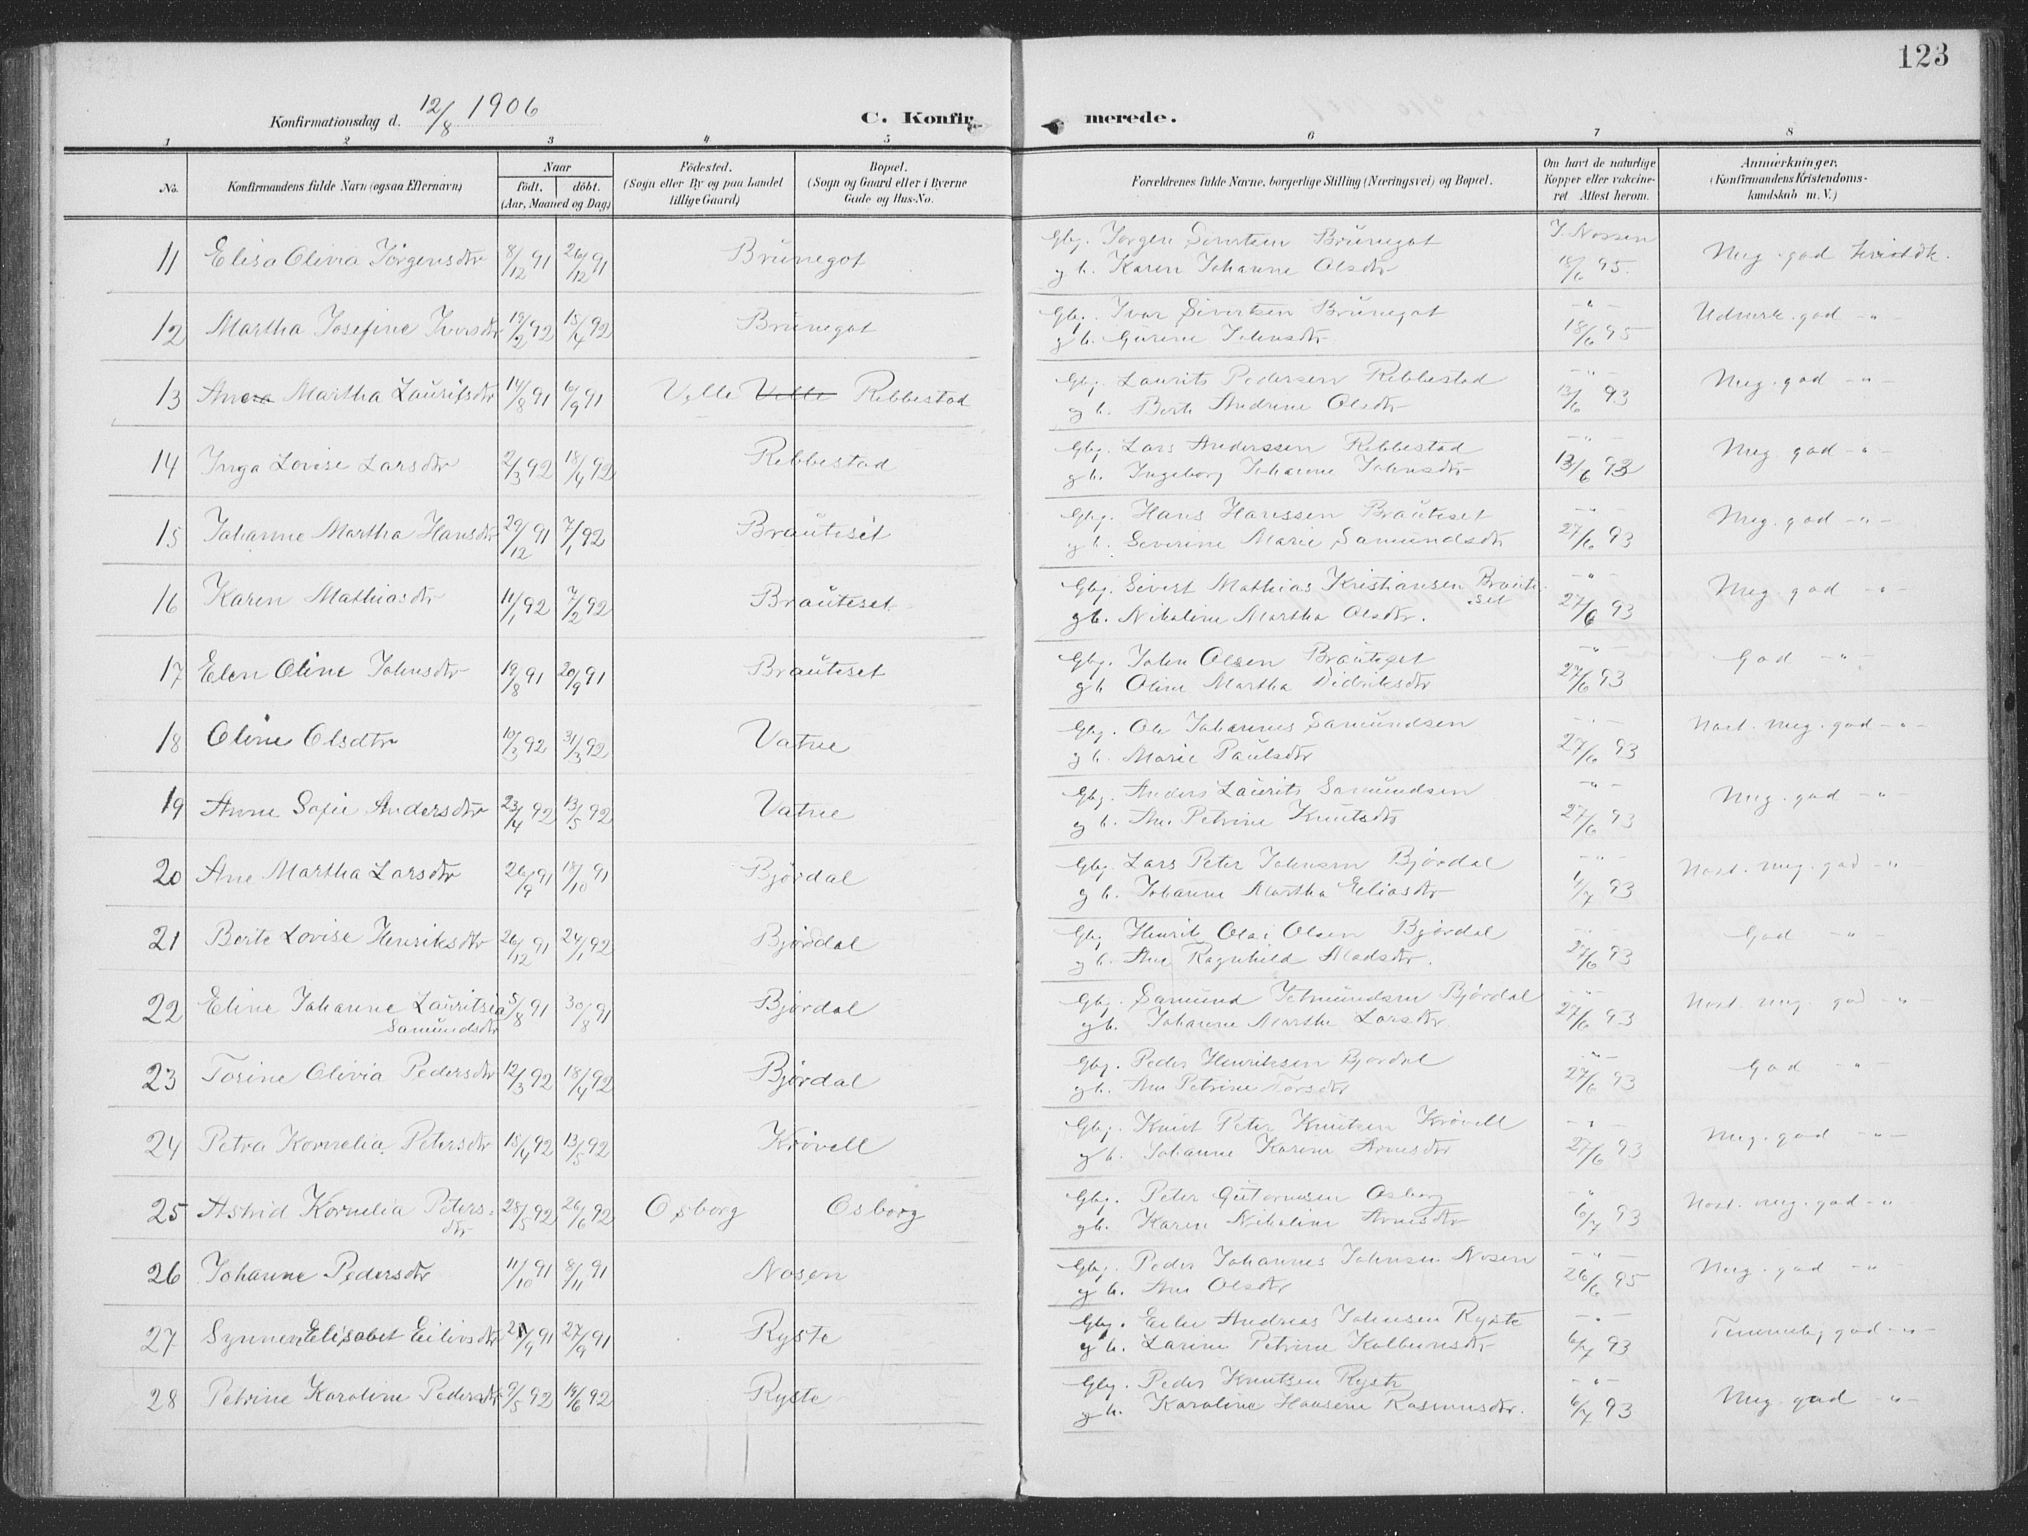 123
Konfirmationsdag d. 12/8 1906 C. Konfir- merede.
1 2 3 4 5 6 7 8
No. Konfirmandens fulde Navn (ogsaa Efternavn) Naar födt. döbt. (Aar, Maaned og Dag) Födested. (Sogn eller By og paa Landet tillige Gaard) Bopæl. (Sogn og Gaard eller i Byerne Gade og Hus-No. Forældrenes fulde Navne, borgerlige Stilling (Næringsvei) og Bopæl. Om havt de naturlige Kopper eller vakcineret Attest herom. Anmærkninger. (Konfirmandens Kristendomskundskab m. V.)
11 Elisa Olivia Jörgensdtr 8/12 91 26/12 91 Brunegot Gbg. Jörgen Sivertsen Brunegot J. Nossen Meg. god
g h. Karen Johanne Olsdtr 18/6 95.
12 Martha Josefine Iversdtr 19/2 92 15/4 92 Brunegot Gbg. Ivar Sivertsen Brunegot -"- Udmerk. god -"-
g h. Gurine Johnsdtr 18/6 95
13 Martha Lauritsdtr 14/8 91 6/9 91 Velle Velle Rebbestad Gbg. Laurits Pedersen Rebbestad -"- Meg. god -"-
g h. Berte Andrine Olsdtr 13/6 93
14 Inga Lovise Larsdtr 2/3 92 18/4 92 Rebbestad Gbg. Lars Anderssen Rebbestad -"- Meg god -"-
g h. Ingeborg Johanne Johnsdtr 13/6 93
15 Johanne Martha Hansdtr 29/12 91 7/1 92 Brauteset Gbg. Hans Hanssen Brauteset -"- Meg. god -"-
g h. Severine Marie Samundsdtr 27/6 93
16 Karen Mathiasdtr 11/1 92 7/2 92 Brauteset Gbg. Sivert Mathias Kristiansen Braute- -"- Meg. god -"-
set
g h. Nikoline Martha Olsdtr. 27/6 93
17 Elen Oline Johnsdtr 19/8 91 20/9 91 Brauteset Gbg. John Olsen Brauteset -"- God -"-
g h Oline Martha Didriksdtr 27/6 93
18 Oline Olsdtr 10/3 92 31/3 92 Vatne Gbg. Ole Johannes Samundsen -"- Næst. meg. god -"-
g h. Marie Paulsdtr 27/6 93
19 Anne Sofie Andersdtr 23/4 92 13/5 92 Vatne Gbg. Anders Laurits Samundsen -"- Meg. god -"-
g h. Ane Petrine Knutsdtr 27/6 93
20 Ane Martha Larsdtr 26/9 91 18/10 91 Bjørdal Gbg. Lars Peter Johnsen Bjørdal -"- Næst. meg. god -"-
g h. Johanne Martha Eliasdtr 1/7 93
21 Berte Lovise Henriksdtr 26/12 91 24/1 92 Bjørdal Gbg Henrik Olai Olsen Bjørdal -"- God -"-
g h. Ane Ragnhild Madsdtr. 27/6 93
22 Eline Johanne Lauritsia 5/8 91 30/8 91 Bjørdal Gbg. Samund Jetmundsen Bjørdal -"- Næst. meg. god -"-
Samundsdtr g h. Johanne Marthe Larsdtr 27/6 93
23 Torine Olivia Pedersdtr 12/3 92 18/4 92 Bjørdal Gbg. Peder Henriksen Bjørdal -"- God -"-
g h. Ane Petrine Torsdtr 27/6 93
24 Petra Kornelia Petersdtr 15/4 92 13/5 92 Krøvell Gbg. Knut Peter Knutsen Krøvell -"- Meg. god -"-
g h. Johanne Karine Arnesdtr 27/6 93
25 Astrid Kornelia Peters- 28/5 92 26/6 92 Osborg Osborg Gbg. Peter Gutormsen Osborg -"- Næst. meg. god -"-
dtr g h. Karen Nikoline Arnesdtr 6/7 93
26 Johanne Pedersdtr 11/10 91 8/11 91 Nosen Gbg. Peder Johannes Johnsen Nosen -"- Meg. god -"-
g h. Ane Olsdtr 26/6 95
27 Elisabet Eilivsdtr 21/9 91 27/9 91 Ryste Gbg. Andreas Johnsen Ryste -"- Temmelig god -"-
g h. Larine Petrine Kolbensdtr 6/7 93
28 Petrine Karoline Pedersdtr 9/5 92 19/6 92 Ryste Gbg. Peder Knutsen Ryste -"- Meg. god -"-
g h. Karoline Hansine Rasmusdtr. 6/7 93